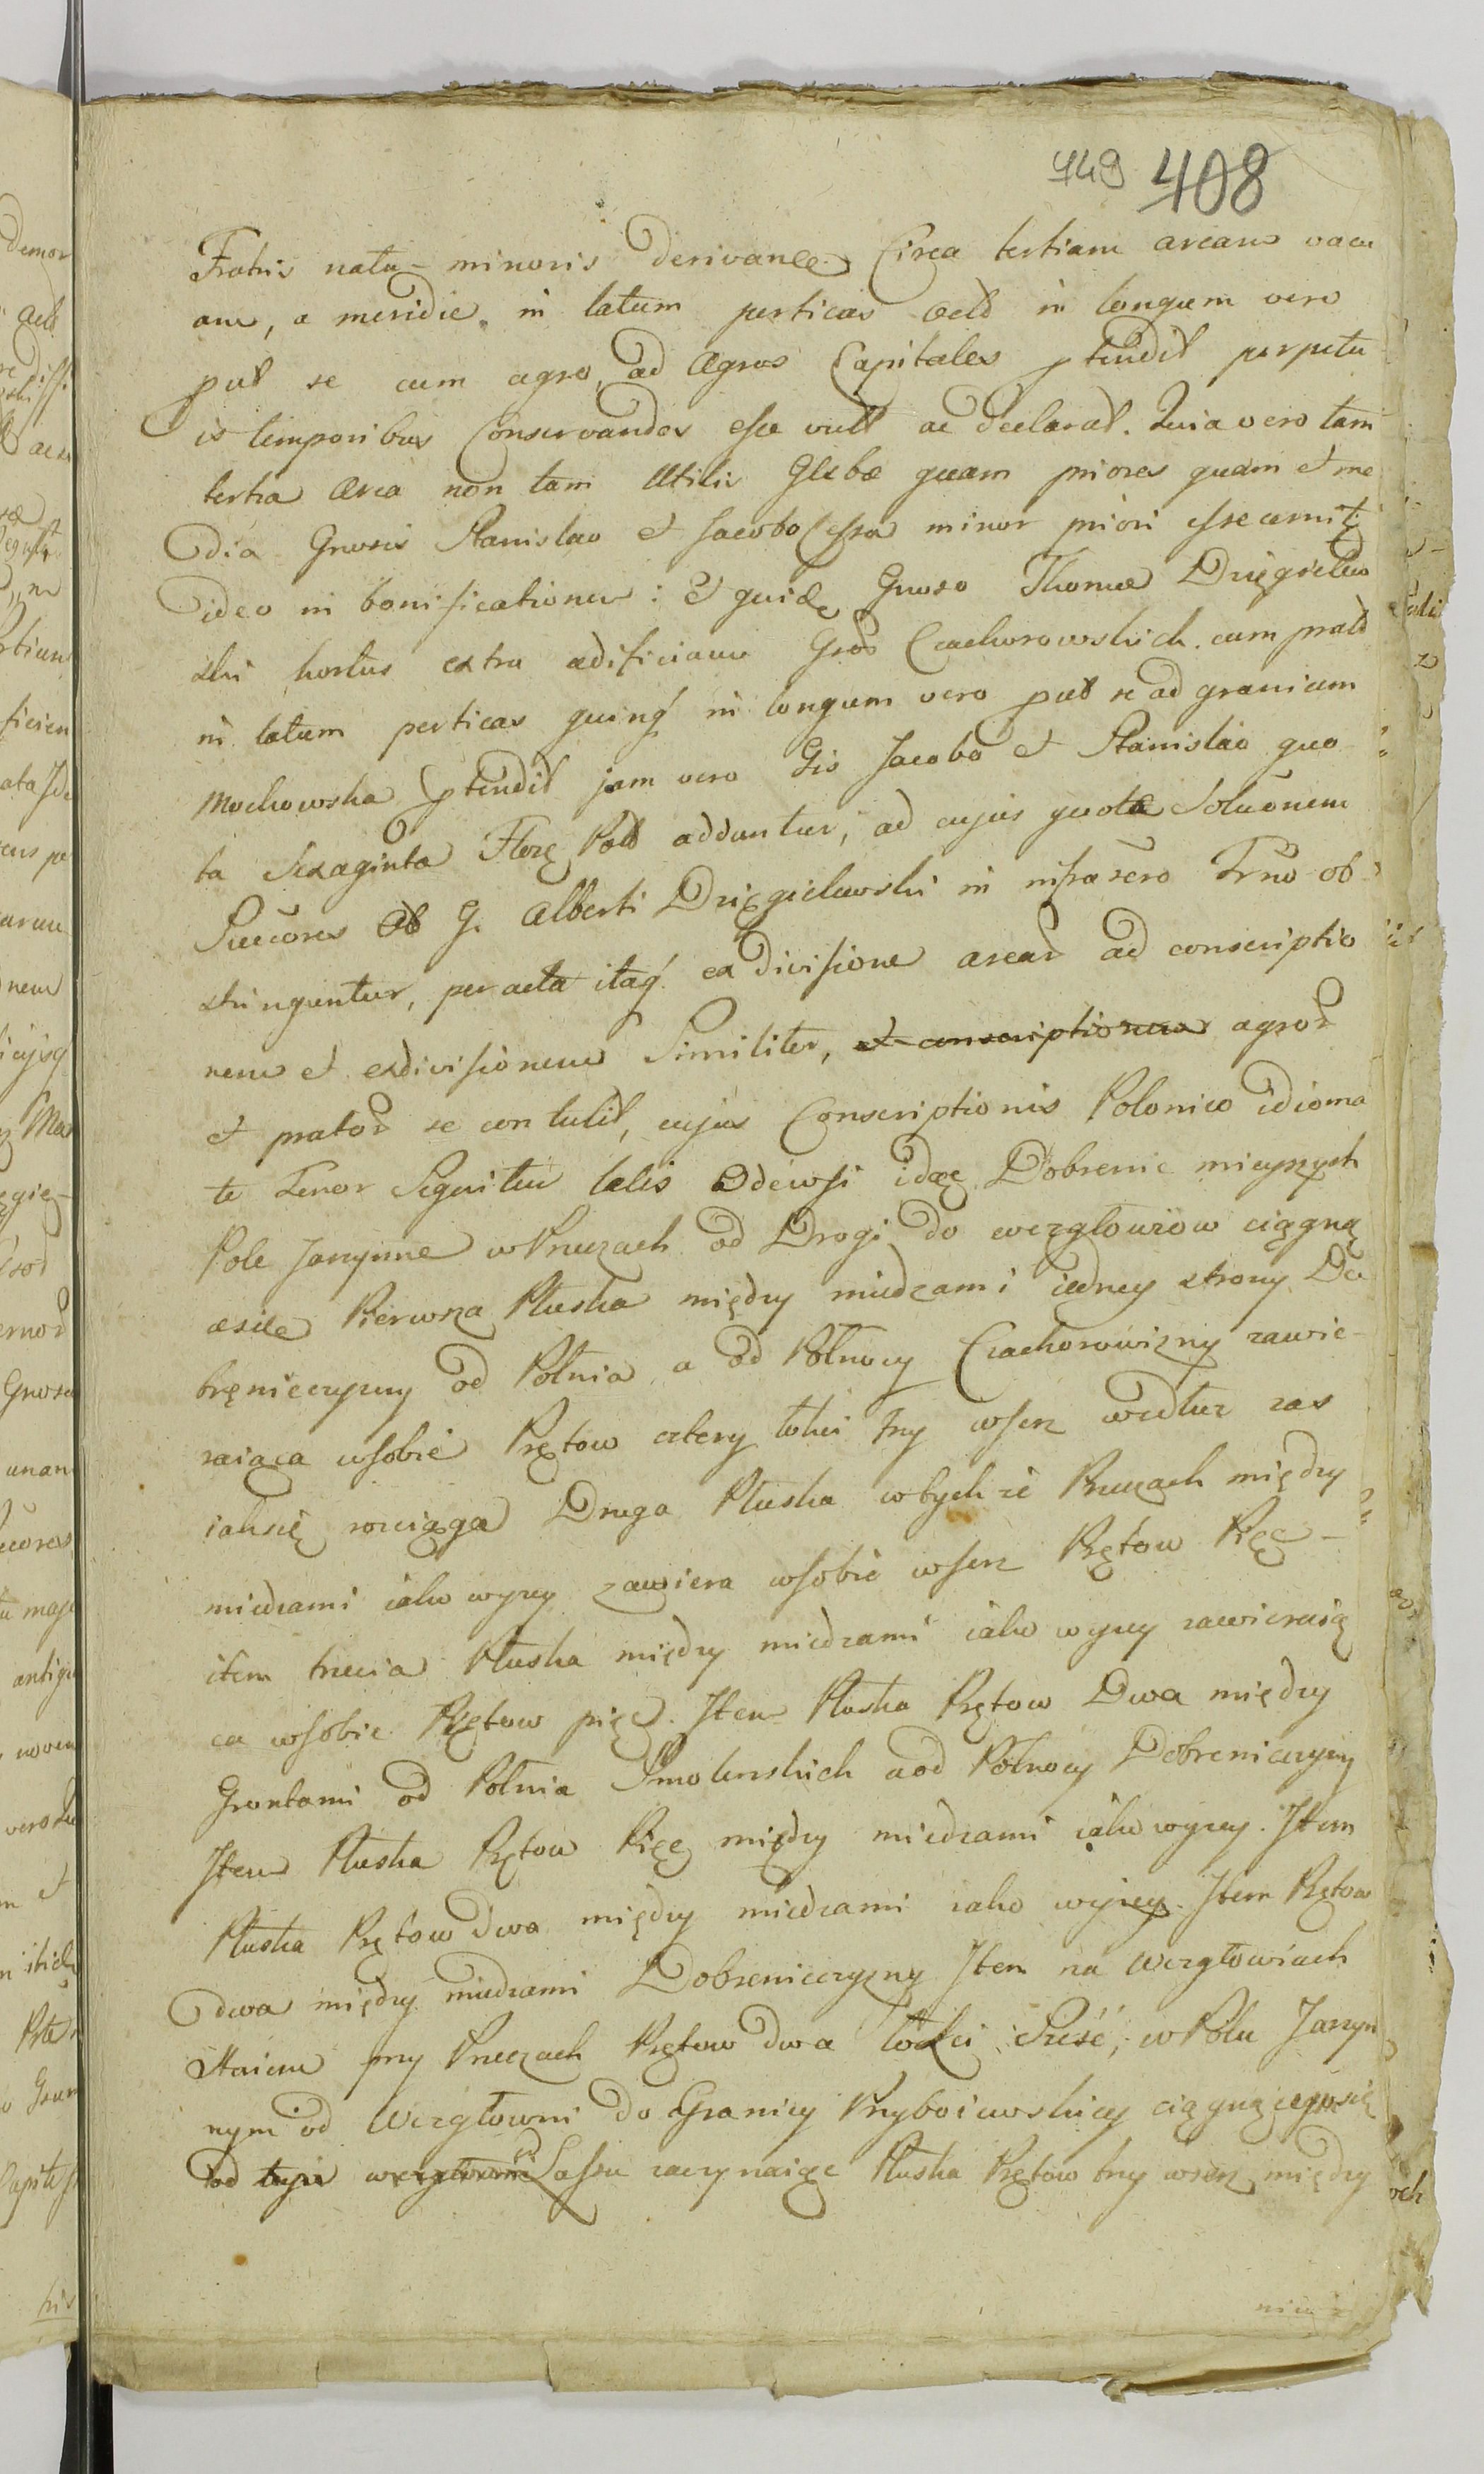 449 408
Fratris natu minoris derivan Circa tertiam aream vacu
am, a meridie, in latum perticas octo in longum vero
put se cum agro, ad Agros Capitales ptendit perpetu
is temporibus Conservandos esse vult ac declarat. Quia vero tam
tertia Area non tam Utilis Glebæ quam priores quam et me
dia Gnosis Stanislao et Jacobo Cessa minor priori esse cernit
ideo in bonificationem: et quid Gnoso Thomæ Dzięgielew
ski hortus extra ædificium Gsos Czachorowskich cum prato
in latum perticas quinq in longum vero put se ad granicem
Mochowska ptendit jam vero Gis Jacobo et Stanislao quo
ta Sexaginta Flor Pol adduntur, ad cujus quotæ Soluōnem
Succōres Ab G. Alberti Dzięgielewski in infrasero Trno ob
stringuntur, per acta itaq exdivisione arear ad conscriptio
nem et exdivisionem Similiter, et conscriptionem agror
et prator se contulit, cujus Conscriptionis Polonico idioma
te Tenor Sequitur talis Odewsi idąc Dobrenic mieyszych
Pole Jarzynne w Pruszach od Drogi do wezgłowiow ciągną
cesie Pierwsza Płuska między miedzami iedney strony Do
brzeniczyzny od Połnia, a od Połnocy Czachorowizny zawie-
raiąca wsobie Prętow cztery łokci trzy wserz wedłuz zas
iaksię rozciąga Druga Płuska wtychze Pruszach między
miedzami iako wyzey zawiera wsobie wserz Prętow Pięc-
item trzecia Płuska między miedzami iako wyzey zawieraią
ca wsobie Prętow pięc. Item Płuska Prętow Dwa między
Grontami od Połnia Smolenskich aod Połnocy Dobreniczyzny
Item Płuska Prętow Pięc między miedzami iako wyzey. Item
Płuska Prętow dwa między miedzami iako wyzey. Item Prętow
dwa między miedzami Dobreniczyzny Item na Wezgłowiach
Staiem przy Pruszach Prętow dwa łokci Szesć, w Polu Jarzyn
nym od Wezgłowni do Granicy Przyboiewskiey ciągnącymsię
od tych wezgłowni od Lassu zaczynaiąc Płuska Prętow trzy wserz między